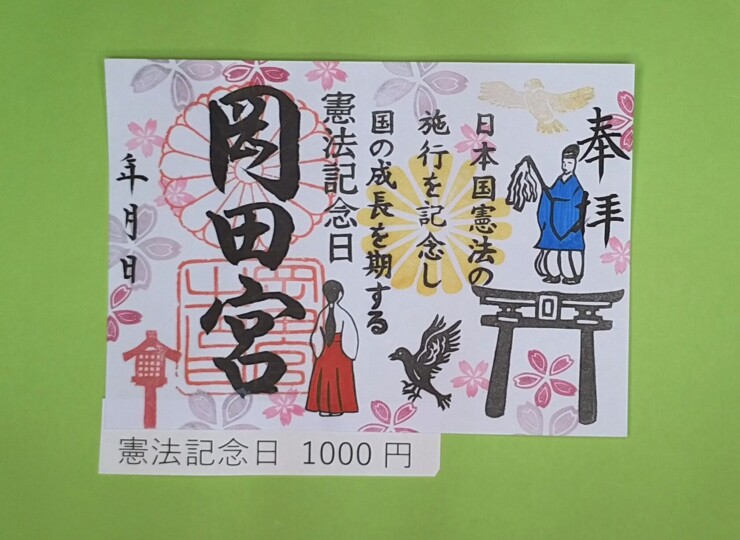 奉拝
日本国憲法の
施行を記念し
国の成長を期する
憲法記念日
岡田宮
年月日
憲法記念日 1000 円